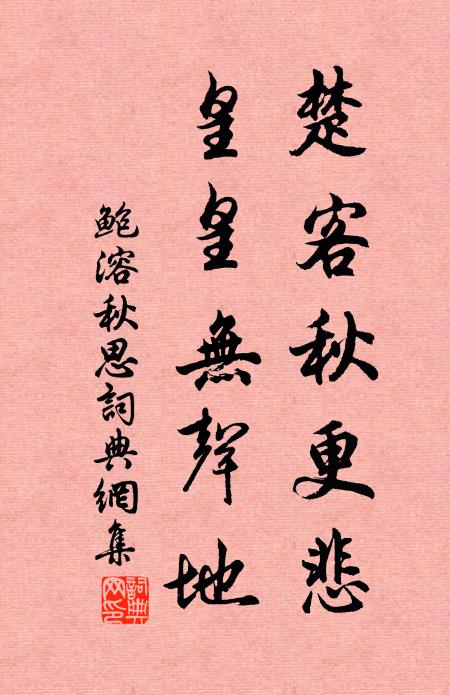 楚客秋更悲
皇皇無聲地
鲍溶秋思詞典網集
詞典網印